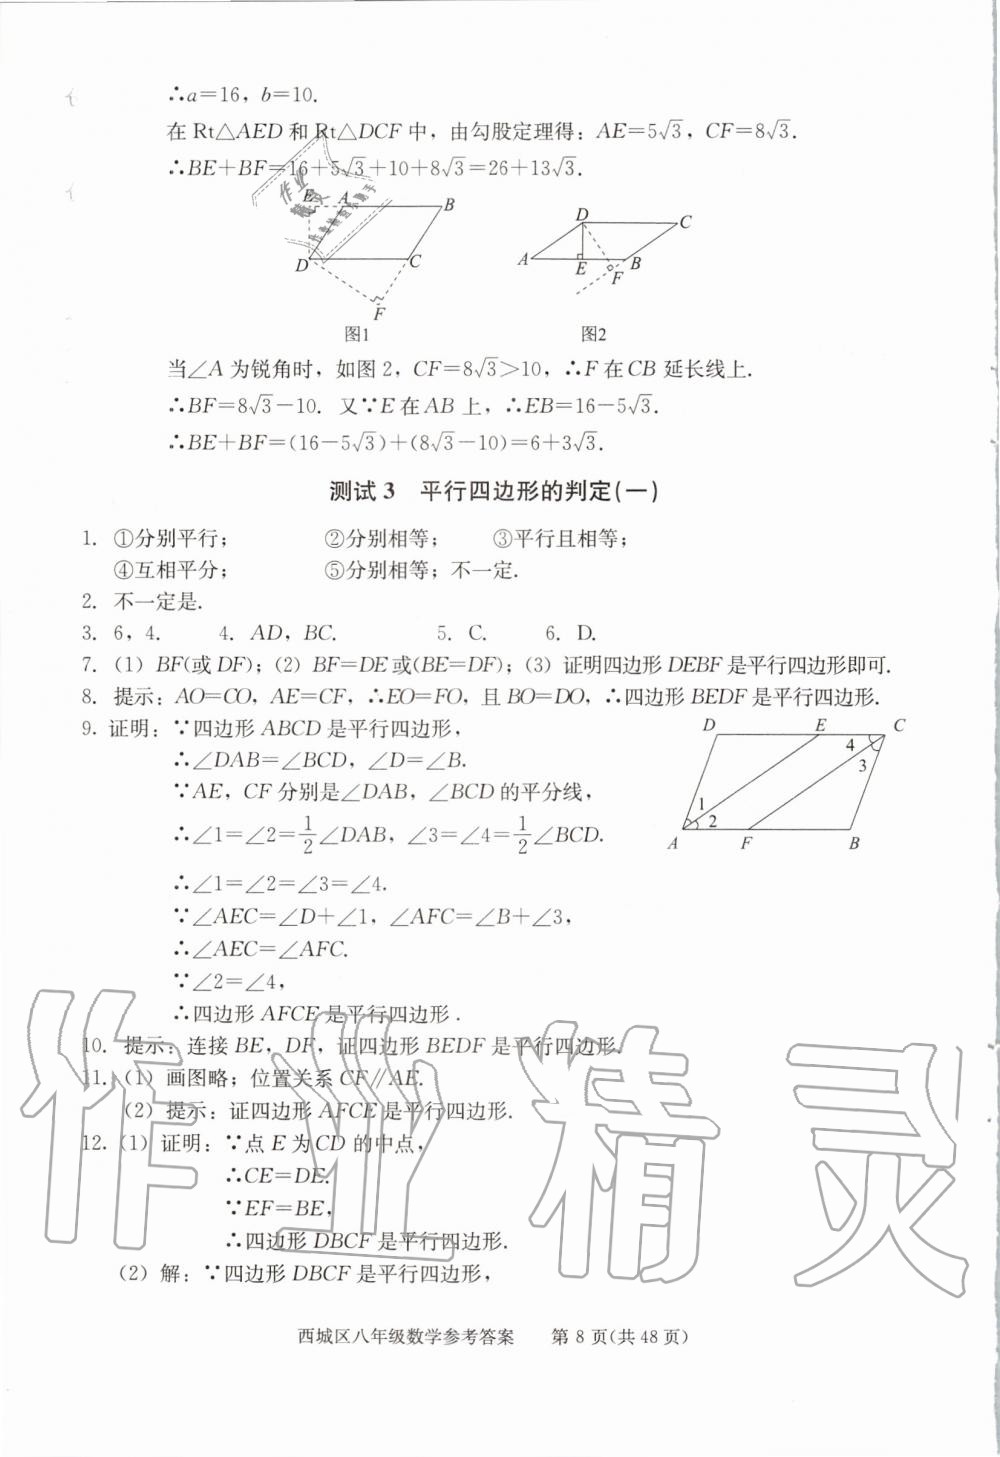 ∴a=16，b=10.
在 Rt△AED 和 Rt△DCF 中，由勾股定理得：AE=5√3，CF=8√3.
∴BE+BF=16+5√3+10+8√3=26+13√3.
E A B
D C
F
图1
D C
A E B
F
图2
当∠A 为锐角时，如图 2，CF=8√3>10，∴F 在 CB 延长线上.
∴BF=8√3−10. 又∵E 在 AB 上，∴EB=16−5√3.
∴BE+BF=(16−5√3)+(8√3−10)=6+3√3.
测试 3 平行四边形的判定(一)
1. ①分别平行； ②分别相等； ③平行且相等；
④互相平分； ⑤分别相等；不一定.
2. 不一定是.
3. 6，4. 4. AD，BC. 5. C. 6. D.
7. (1) BF(或 DF)；(2) BF=DE 或(BE=DF)；(3) 证明四边形 DEBF 是平行四边形即可.
8. 提示：AO=CO，AE=CF，∴EO=FO，且 BO=DO，∴四边形 BEDF 是平行四边形.
9. 证明：∵四边形 ABCD 是平行四边形，
∴∠DAB=∠BCD，∠D=∠B.
∵AE，CF 分别是∠DAB，∠BCD 的平分线，
∴∠1=∠2=1/2∠DAB，∠3=∠4=1/2∠BCD.
∴∠1=∠2=∠3=∠4.
∵∠AEC=∠D+∠1，∠AFC=∠B+∠3，
∴∠AEC=∠AFC.
∵∠2=∠4，
∴四边形 AFCE 是平行四边形.
D E C
4
3
1
2
A F B
10. 提示：连接 BE，DF，证四边形 BEDF 是平行四边形.
11. (1) 画图略；位置关系 CF∥AE.
(2) 提示：证四边形 AFCE 是平行四边形.
12. (1) 证明：∵点 E 为 CD 的中点，
∴CE=DE.
∵EF=BE，
∴四边形 DBCF 是平行四边形.
(2) 解：∵四边形 DBCF 是平行四边形，
作业精灵
西城区八年级数学参考答案 第 8 页(共 48 页)